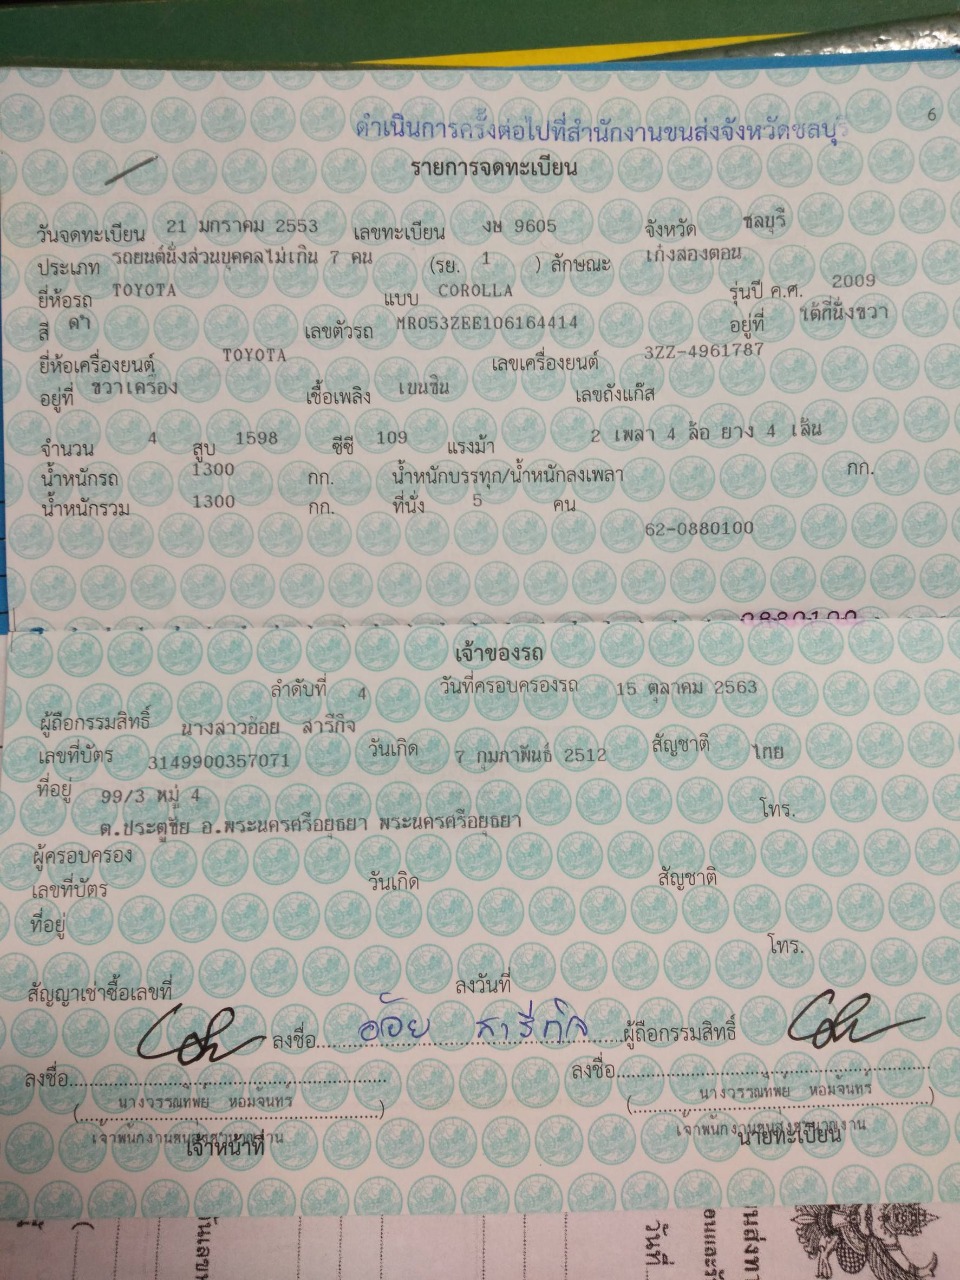 6
ดำเนินการครั้งต่อไปที่สำนักงานขนส่งจังหวัดชลบุรี
รายการจดทะเบียน
วันจดทะเบียน 21 มกราคม 2553 เลขทะเบียน งษ 9605 จังหวัด ชลบุรี
ประเภท รถยนต์นั่งส่วนบุคคลไม่เกิน 7 คน (รย. 1 ) ลักษณะ เก๋งสองตอน
ยี่ห้อรถ TOYOTA แบบ COROLLA รุ่นปี ค.ศ. 2009
สี ดำ เลขตัวรถ MR053ZEE106164414 อยู่ที่ ใต้ที่นั่งขวา
ยี่ห้อเครื่องยนต์ TOYOTA เลขเครื่องยนต์ 3ZZ-4961787
อยู่ที่ ขวาเครื่อง เชื้อเพลิง เบนซิน เลขถังแก๊ส
จำนวน 4 สูบ 1598 ซีซี 109 แรงม้า 2 เพลา 4 ล้อ ยาง 4 เส้น
น้ำหนักรถ 1300 กก. น้ำหนักบรรทุก/น้ำหนักลงเพลา กก.
น้ำหนักรวม 1300 กก. ที่นั่ง 5 คน
62-0880100
0880100
เจ้าของรถ
ลำดับที่ 4 วันที่ครอบครองรถ 15 ตุลาคม 2563
ผู้ถือกรรมสิทธิ์ นางสาวอ้อย สารีกิจ
เลขที่บัตร 3149900357071 วันเกิด 7 กุมภาพันธ์ 2512 สัญชาติ ไทย
ที่อยู่ 99/3 หมู่ 4 โทร.
ต.ประตูชัย อ.พระนครศรีอยุธยา พระนครศรีอยุธยา
ผู้ครอบครอง
เลขที่บัตร วันเกิด สัญชาติ
ที่อยู่ โทร.
สัญญาเช่าซื้อเลขที่ ลงวันที่
ลงชื่อ อ้อย สารีกิจ ผู้ถือกรรมสิทธิ์
ลงชื่อ ลงชื่อ
(นางวรรณทิพย์ หอมจันทร์) (นางวรรณทิพย์ หอมจันทร์)
เจ้าพนักงานขนส่งชำนาญงาน เจ้าพนักงานขนส่งชำนาญงาน
เจ้าหน้าที่ นายทะเบียน
วันที่